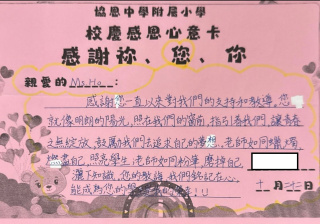 協恩中學附屬小學
校慶感恩心意卡
感謝祢、您、你
親愛的Ms.Ho:
感謝您一直以來對我們的支持和教導。您
就像明朗的陽光,照在我們的窗前,指引着我們,讓青春
之無綻放,鼓勵我們去追求自己的夢想。老師如同蠟燭
盡自己,照亮學生;老師如同粉筆,磨掉自己
灑下知識。您的教誨,我們銘記在心,
能成為您的學生
十一月二十二日